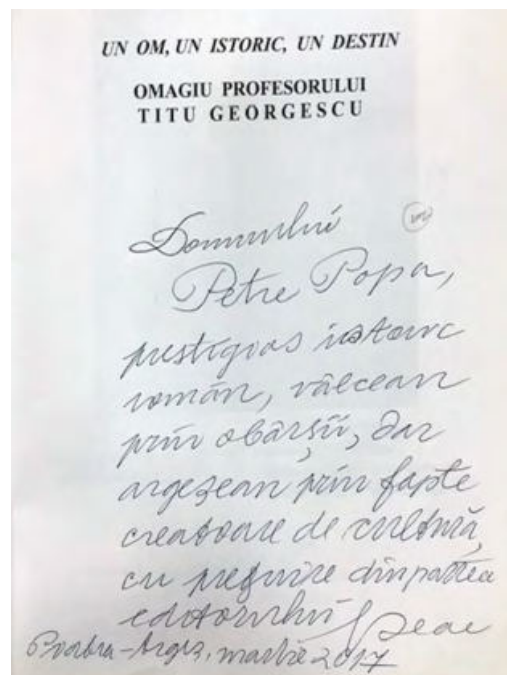 UN OM, UN ISTORIC, UN DESTIN
OMAGIU PROFESORULUI
TITU GEORGESCU
Domnului
Petre Popa,
prestigios istoric
român, vâlcean
prin obârșii, dar
argeșean prin fapte
creatoare de cultură,
cu prețuire din partea
editorului
martie 2017